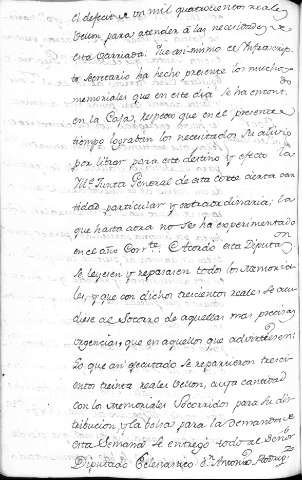 el defecto de un mil quatrocientos reales
vellon para atender à las necesidades de
esta Barriada. Que asimismo el Infrascrip-
to Secretario ha hecho presente los muchos
memoriales que en este dia se ha encontrado
en la Caja, respecto que en el presente
tiempo lograban los necesitados su alivio
por librar para este destino y efecto la
Rl. Junta General de esta Corte cierta can
tidad particular y extraordinaria; la
que hasta aora no se ha experimentado
en el año Corrte. Acordó esta Diputaon
se leyesen y reparasen todos los Memoria-
les, y que con dichos trescientos reales se acu
diese al Socorro de aquellas mas precisas
urgencias, que en aquellos que advirtiesen;
Lo que asi egecutado se repartieron tresci-
entos treinta reales vellon, cuya cantidad
con los Memoriales Socorridos para su dis-
tribucion, y la bolsa para la Demanda de
esta Semana se entregó todo al Señor
Diputado Eclesiastico Dn. Antonio Rodrigz